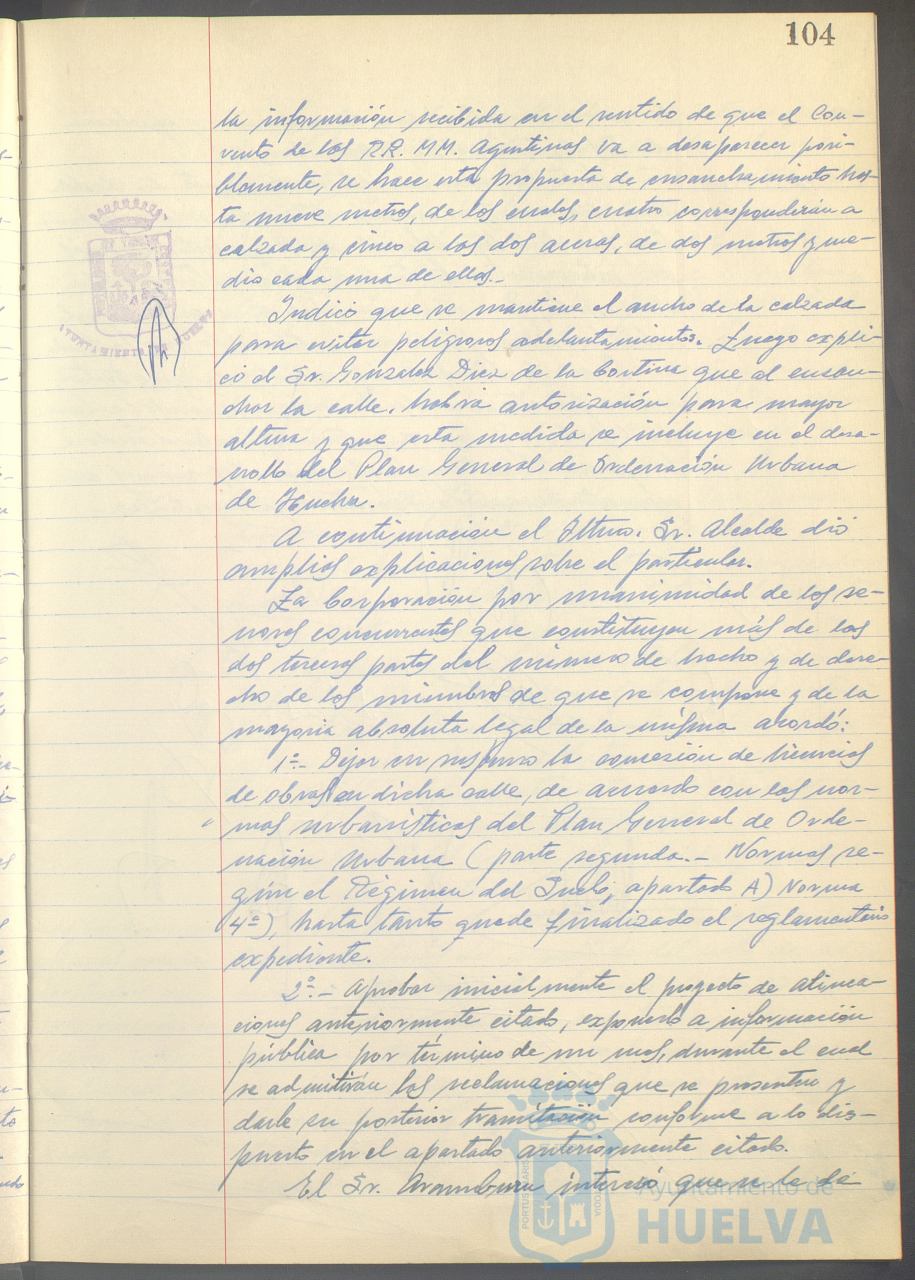 104
la información recibida en el sentido de que el Con-
vento de las RR. MM. Agustinas va a desaparecer posi-
blemente, se hace esta propuesta de ensanchamiento has-
ta nueve metros, de los cuales, cuatro corresponderán a
calzada y cinco a las dos aceras, de dos metros y me-
dio cada una de ellas.-
Indicó que se mantiene el ancho de la calzada
para evitar peligrosos adelantamientos. Luego expli-
có el Sr. Gonzalez Diez de la Cortina que al ensan-
char la calle, habra autorización para mayor
altura y que esta medida se incluye en el desa-
rrollo del Plan General de Ordenación Urbana
de Huelva.
A continuación el Iltmo. Sr. Alcalde dió
amplias explicaciones sobre el particular.
La Corporación por unanimidad de los se-
ñores concurrentes que constituyen más de las
dos terceras partes del número de hecho y de dere-
cho de los miembros de que se compone y de la
mayoria absoluta legal de la misma acordó:
1º.- Dejar en suspenso la concesión de licencias
de obras en dicha calle, de acuerdo con las nor-
mas urbanísticas del Plan General de Orde-
nación Urbana (parte segunda.- Normas se-
gún el Régimen del Suelo, apartado A) Norma
4ª), hasta tanto quede finalizado el reglamentario
expediente.
2º.- Aprobar inicialmente el proyecto de alinea-
ciones anteriormente citado, exponerlo a información
pública por término de un mes, durante el cual
se admitirán las reclamaciones que se presenten y
darle su posterior tramitación conforme a lo dis-
puesto en el apartado anteriormente citado.
El Sr. Aramburu interesó que se le dé
AYUNTAMIENTO DE HUELVA
Ayuntamiento de
HUELVA